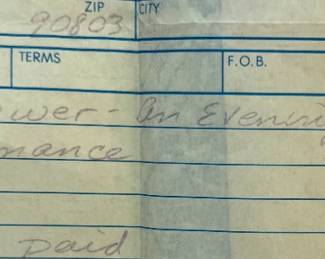 ZIP CITY
90803
TERMS F.O.B.
wer - An Evening
mance
paid